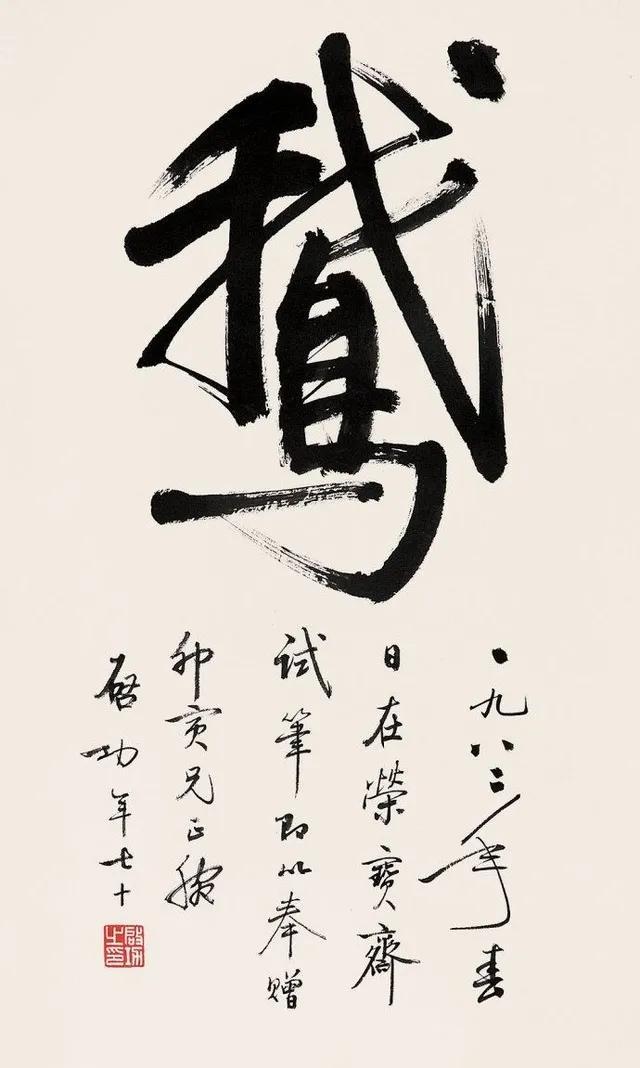 鵞
一九八二年春
日在榮寶齋
试筆即以奉贈
寅兄正腕
啓功年七十
啟功之印